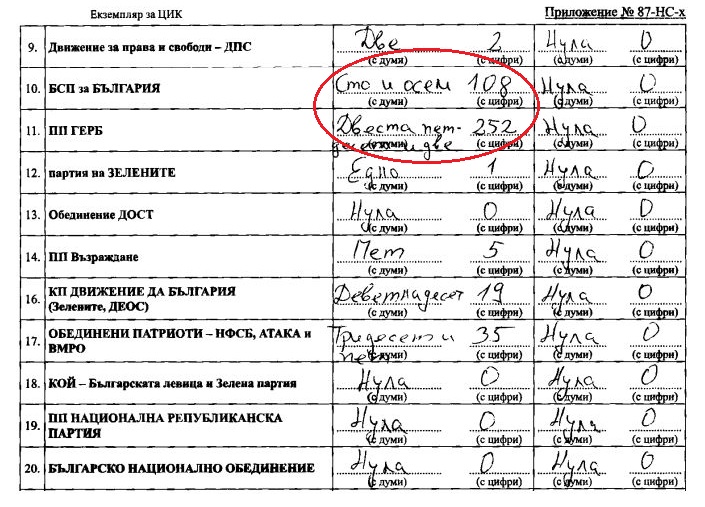 Екземпляр за ЦИК Приложение № 87-НС-х
9. Движение за права и свободи – ДПС Две 2 Нула 0
(с думи) (с цифри) (с думи) (с цифри)
10. БСП за БЪЛГАРИЯ Сто и осем 108 Нула 0
(с думи) (с цифри) (с думи) (с цифри)
11. ПП ГЕРБ Двеста пет- 252 Нула 0
(с думи) (с цифри) (с думи) (с цифри)
десет и две
12. партия на ЗЕЛЕНИТЕ Едно 1 Нула 0
(с думи) (с цифри) (с думи) (с цифри)
13. Обединение ДОСТ Нула 0 Нула 0
(с думи) (с цифри) (с думи) (с цифри)
14. ПП Възраждане Пет 5 Нула 0
(с думи) (с цифри) (с думи) (с цифри)
16. КП ДВИЖЕНИЕ ДА БЪЛГАРИЯ Деветнадесет 19 Нула 0
(Зелените, ДЕОС) (с думи) (с цифри) (с думи) (с цифри)
17. ОБЕДИНЕНИ ПАТРИОТИ – НФСБ, АТАКА и Тридесет и 35 Нула 0
ВМРО пет (с думи) (с цифри) (с думи) (с цифри)
18. КОЙ – Българската левица и Зелена партия Нула 0 Нула 0
(с думи) (с цифри) (с думи) (с цифри)
19. ПП НАЦИОНАЛНА РЕПУБЛИКАНСКА Нула 0 Нула 0
ПАРТИЯ (с думи) (с цифри) (с думи) (с цифри)
20. БЪЛГАРСКО НАЦИОНАЛНО ОБЕДИНЕНИЕ Нула 0 Нула 0
(с думи) (с цифри) (с думи) (с цифри)